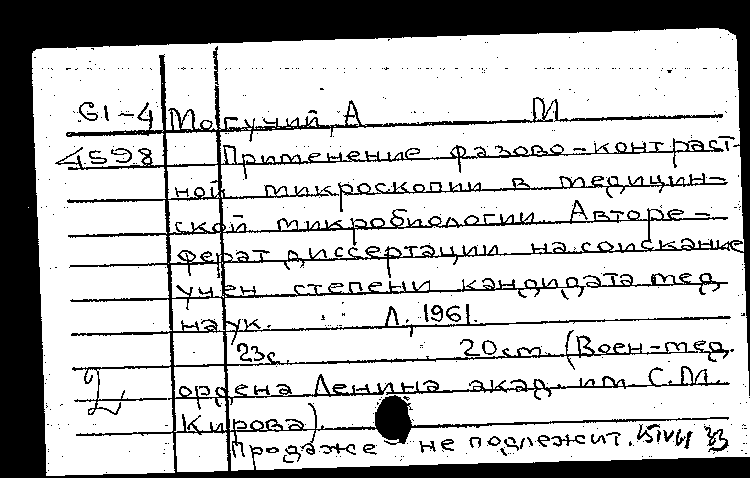 61-4 Могучий, А М
4598 Применение фазово-контраст-
ной микроскопии в медицин-
ской микробиологии. Авторе-
ферат диссертации на соискание
учен степени кандидата мед
наук. Л., 1961.
23с. 20см. (Воен-мед.
2 ордена Ленина акад. им С.М.
Кирова).
Продаже не подлежит. 33